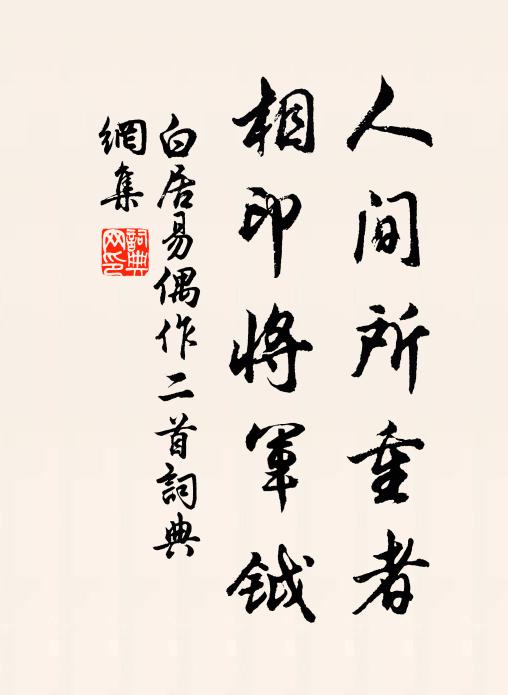 人间所重者
相印将軍鉞
白居易偶作二首詞典
網集
詞典网印